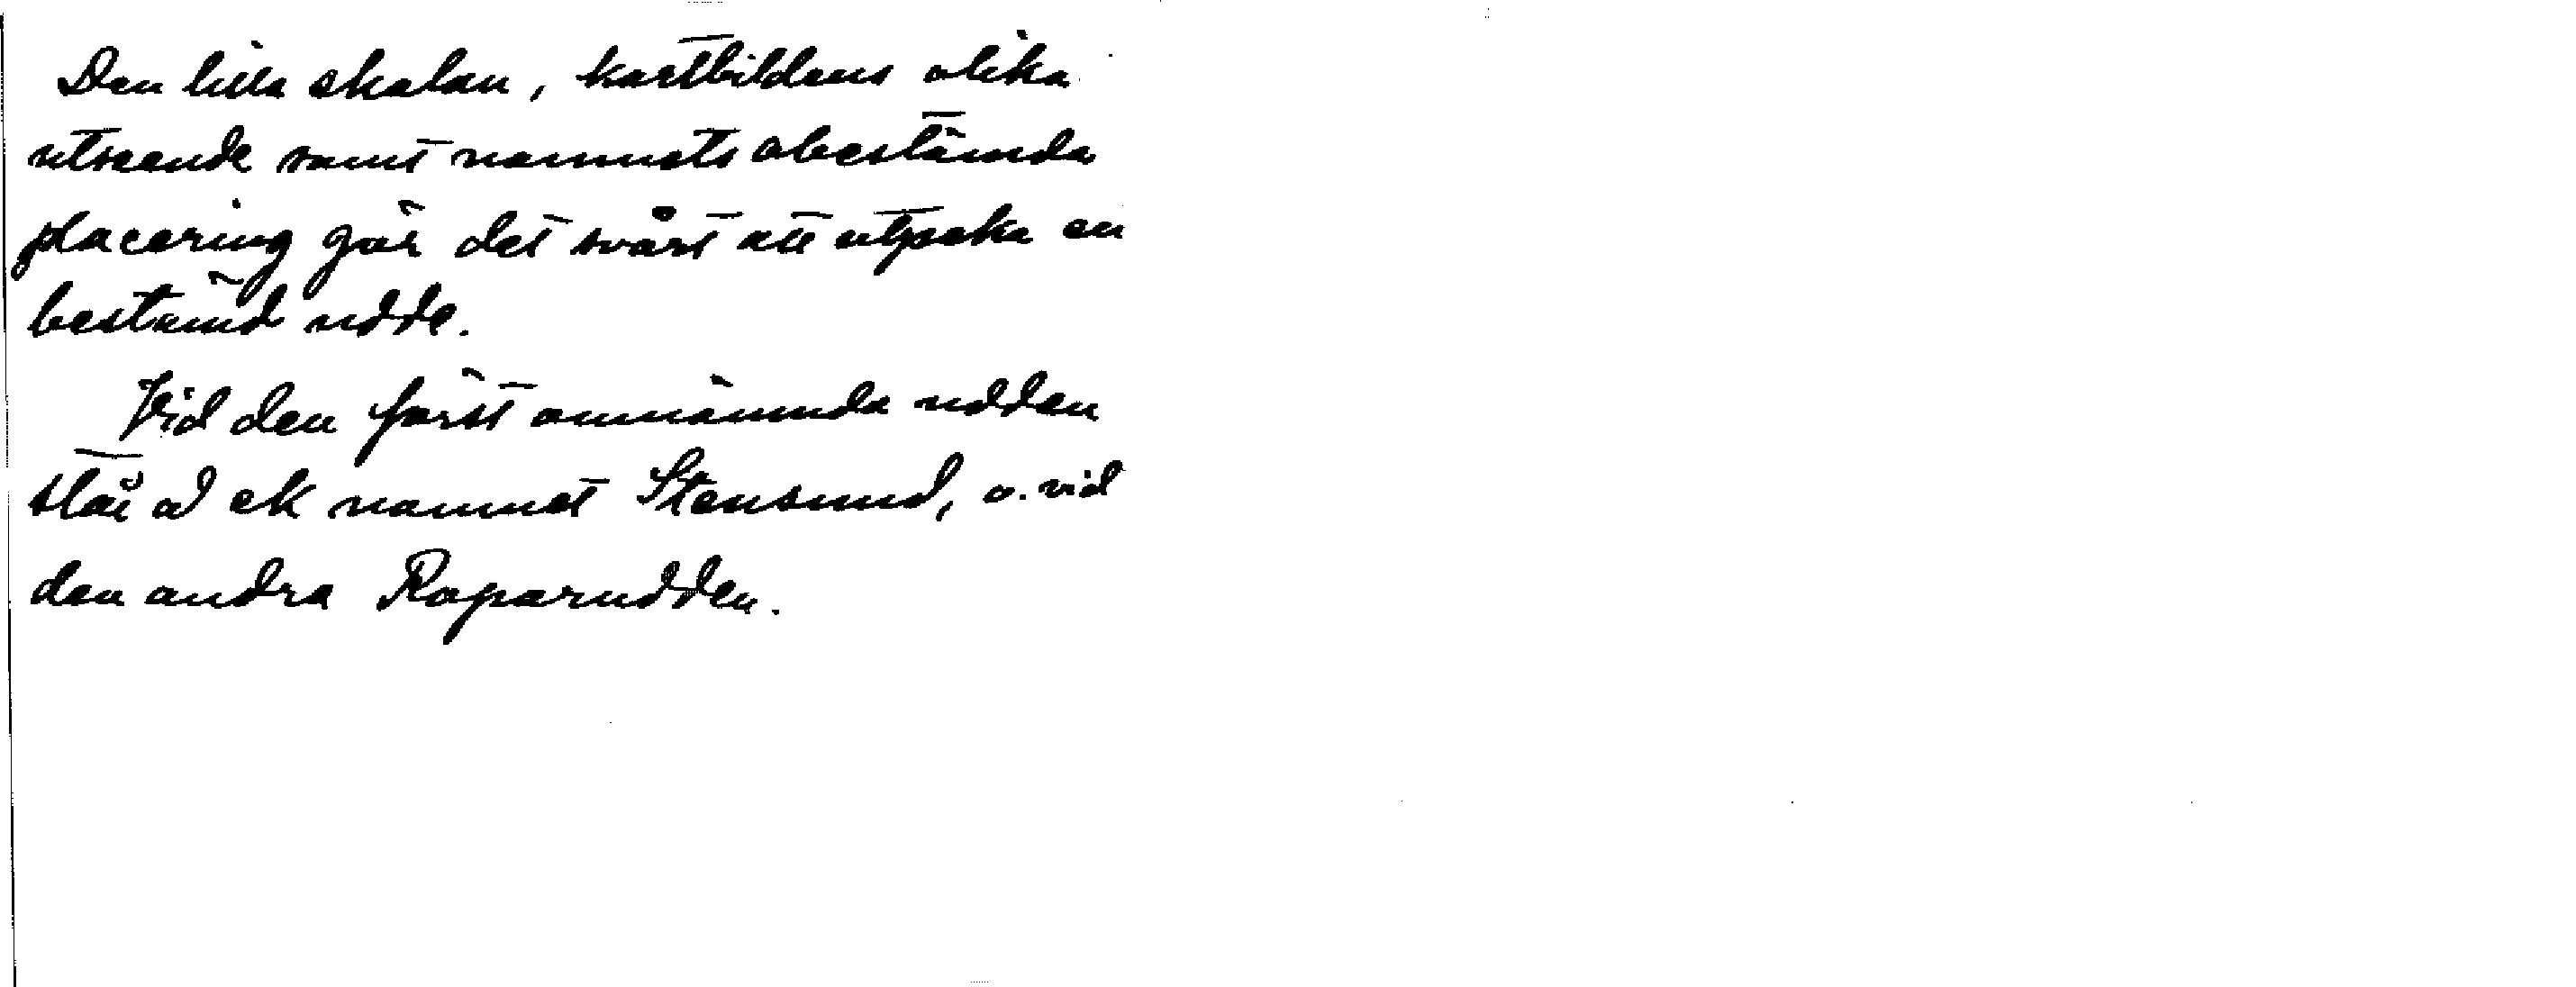 Den lilla skalan, kartbildens olika
utseende samt namnets obestämda
placering gör det svårt att utpeka en
bestämd udde.
Vid den först omnämnda udden
står å ek namnet Stensund, o. vid
den andra Roparudden.